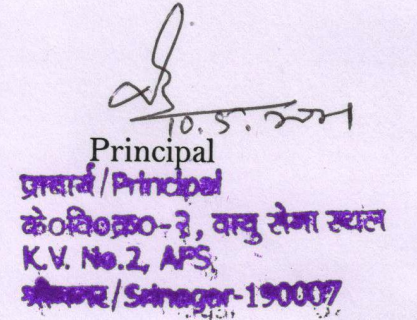 10.5.2021
Principal
प्राचार्य / Principal
के०वि०क्र०-२, वायु सेना स्थल
K.V. No.2, AFS,
श्रीनगर / Srinagar-190007